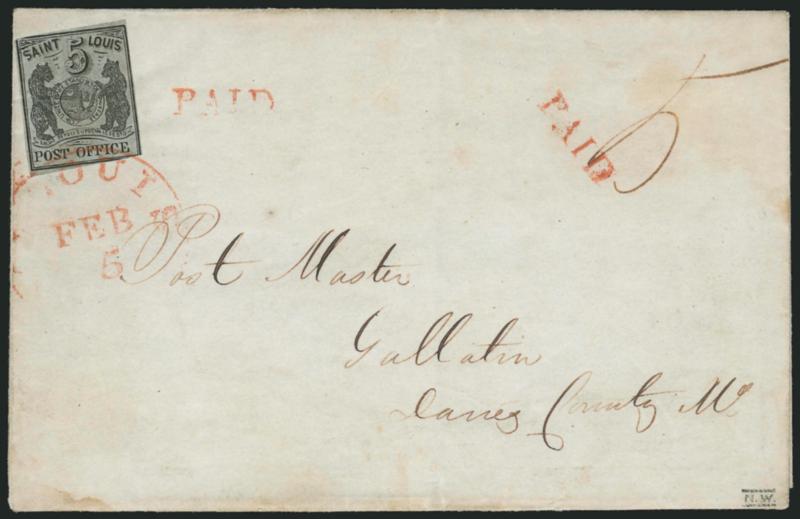 SAINT LOUIS
5
POST OFFICE
PAID
PAID
5
FEB
5
Post Master
Gallatin
County Mo
N.W.